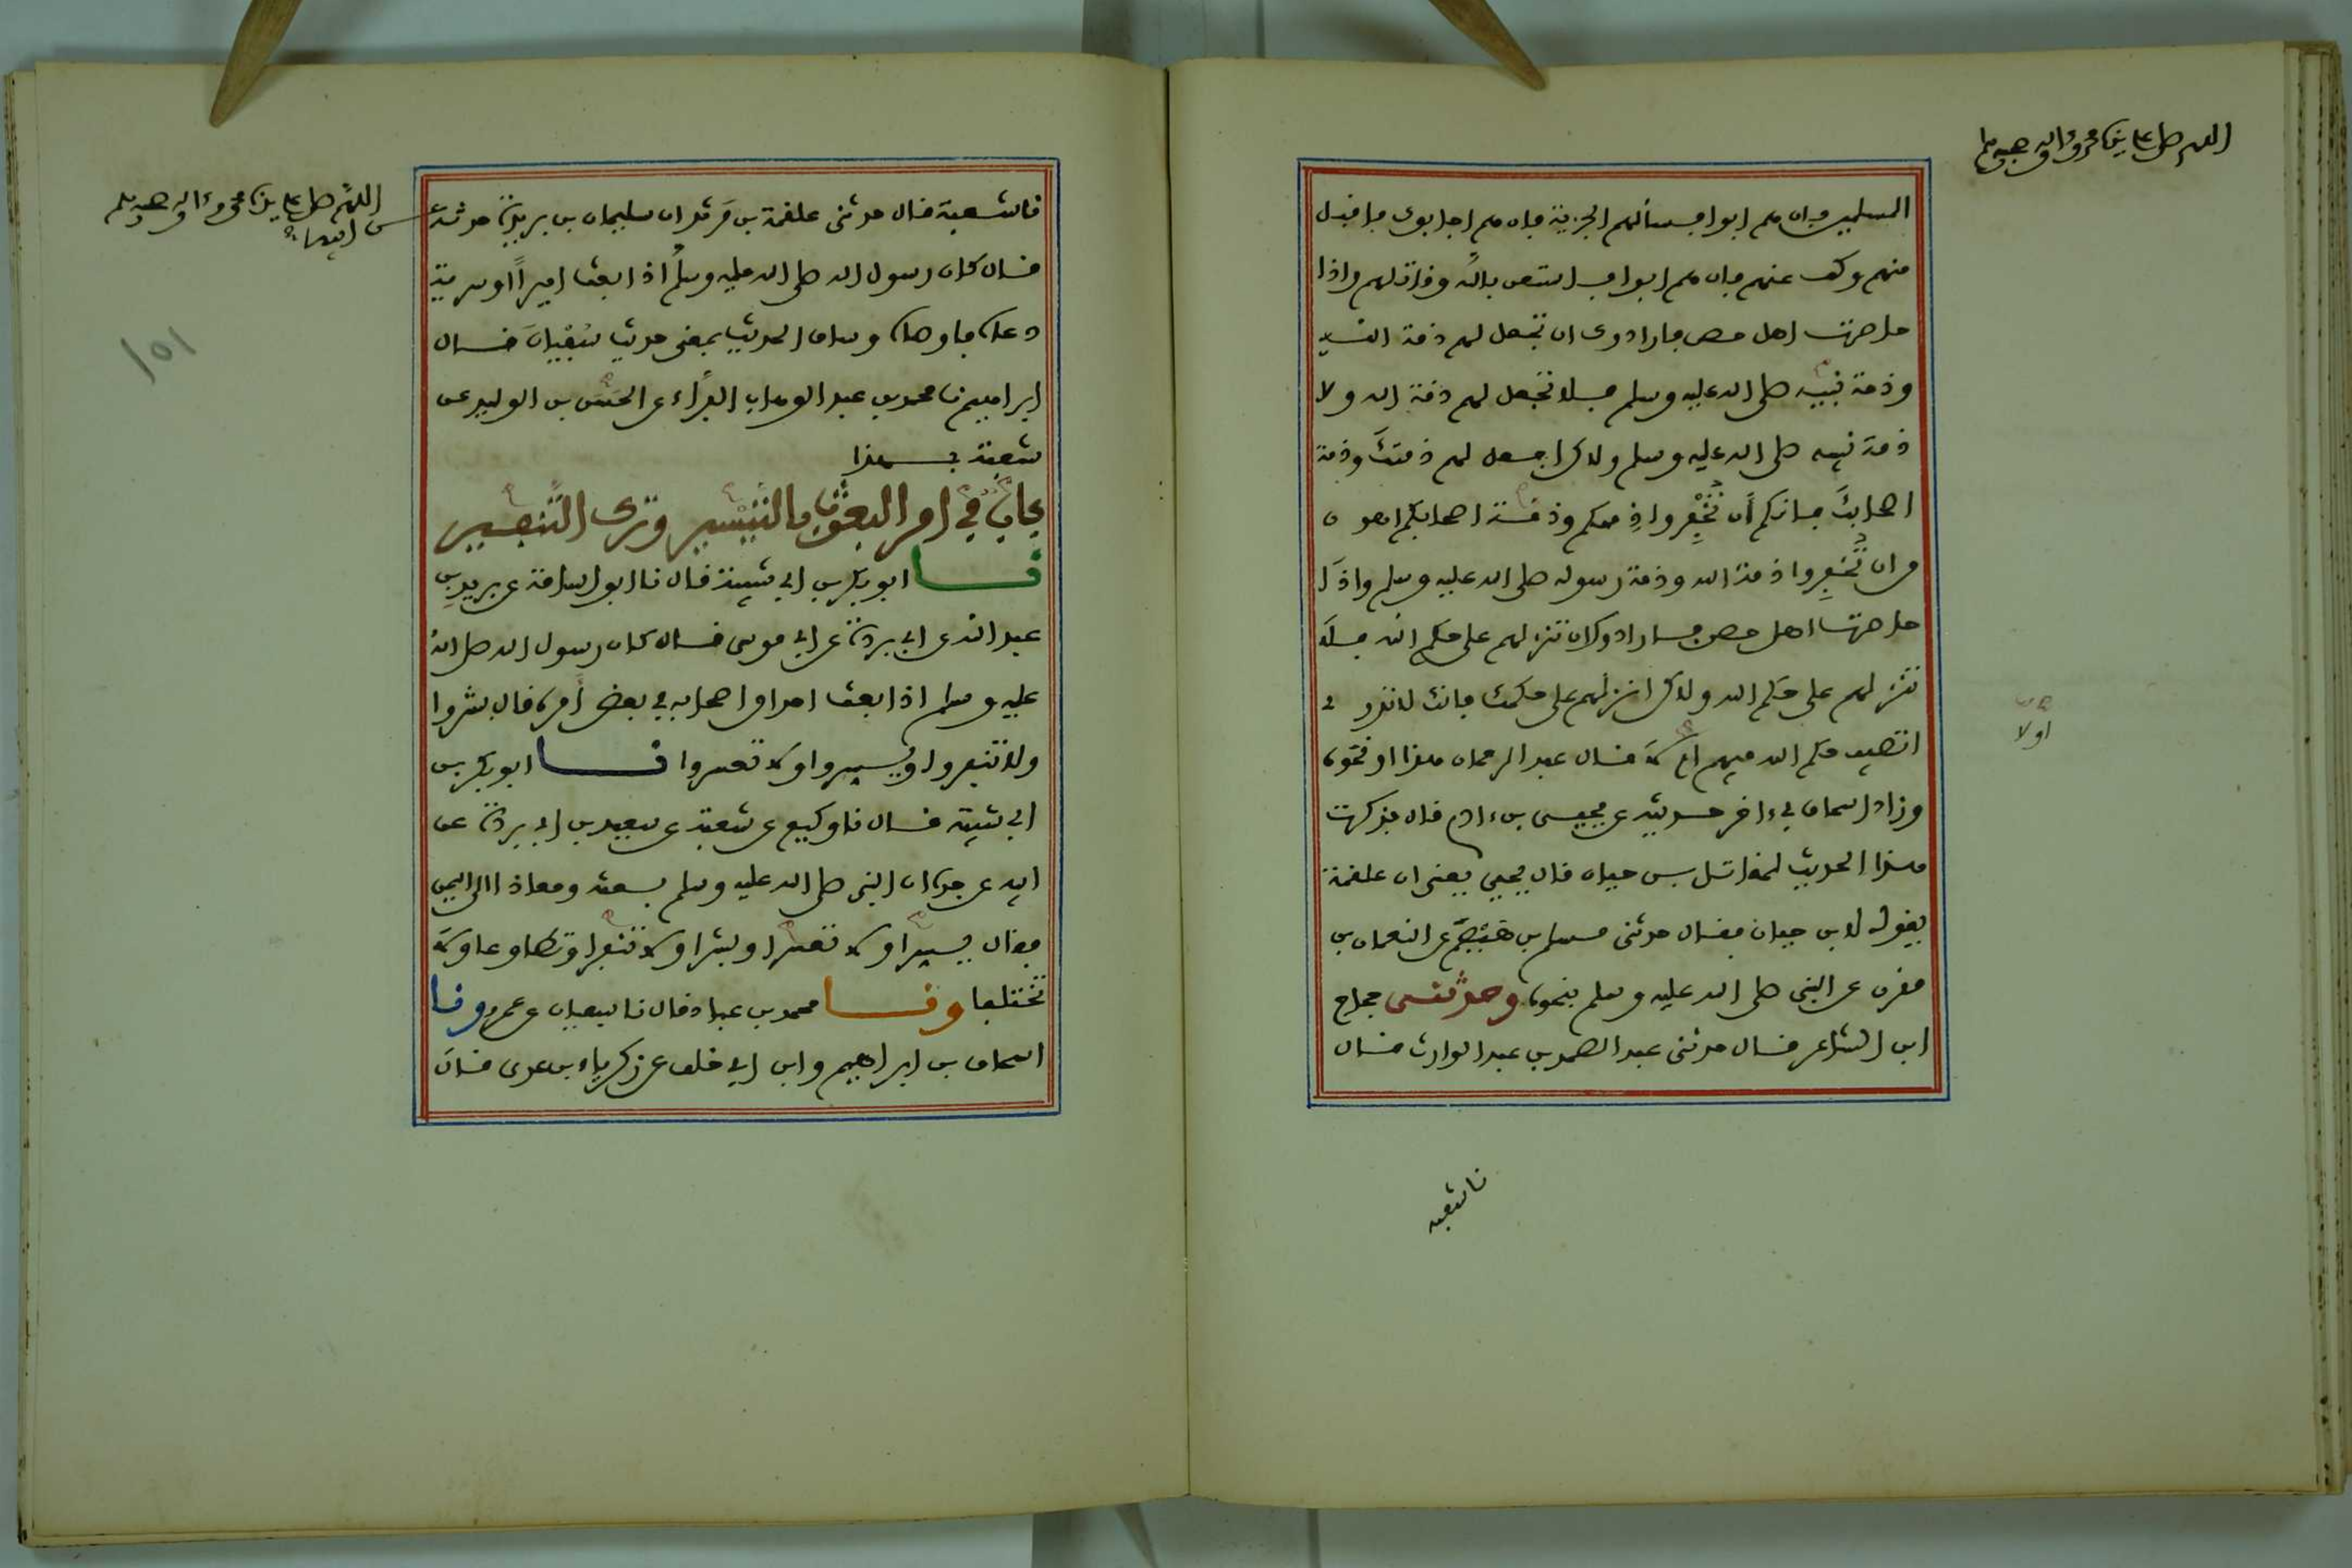 اللهم صل على سيدنا محمد وءاله وصحبه وسلم
المسلمين فان هم ابوا فسألهم الجزية فان هم اجابوك فاقبل
منهم وكف عنهم فان هم ابوا فاستعن بالله وقاتلهم واذا
حاصرت اهل حصن فارادوك ان تجعل لهم ذمة الله
وذمة نبيه صلى الله عليه وسلم فلا تجعل لهم ذمة الله ولا
ذمة نبيه صلى الله عليه وسلم ولاكن اجعل لهم ذمتك وذمة
اصحابك فانكم أن تُخْفِروا ذممكم وذمة اصحابكم اهون
من ان تُخفِروا ذمة الله وذمة رسوله صلى الله عليه وسلم واذا
حاصرت اهل حصن فارادوك ان تنزلهم على حكم الله فلا
تنزلهم على حكم الله ولاكن انزلهم على حكمك فانك لا تدري
اتصيب حكم الله فيهم ام لا قال عبد الرحمان هذا او نحوه
اولا
وزاد اسحاق في ءاخر حديثه عن يحيى بن ءادم قال فذكرت
هذا الحديث لمقاتل بن حيان قال يحيى يعني ان علقمة
يقوله لابن حيان فقال حدثني مسلم بن هَيْصَم عن النعمان بن
مقرن عن النبي صلى الله عليه وسلم بنحوه وحدثنى حجاج
ابن الشاعر قال حدثني عبد الصمد بن عبد الوارث قال
نا شعبة
اللهم صل على سيدنا محمد وءاله وصحبه وسلم
نا شعبة قال حدثني علقمة بن مَرثد ان سليمان بن بريدة حدثه
عن ابيه
قال كان رسول الله صلى الله عليه وسلم اذا بعث اميرًا او سرية
دعاه فاوصاه وساق الحديث بمعنى حديث سُفْيانَ قال
ابراهيم نا محمد بن عبد الوهاب الفراء عن الحسين بن الوليد عن
شعبة بهذا
باب في امر البعوث بالتيسير وترك التنفير
نا ابو بكر بن ابي شيبة قال نا ابو اسامة عن بريد بن
عبد الله عن ابي بردة عن ابي موسى قال كان رسول الله صلى الله
عليه وسلم اذا بعث احدا من اصحابه في بعض أمره قال بشروا
ولا تنفروا ويسروا ولا تعسروا نا ابو بكر بن
ابي شيبة قال نا وكيع عن شعبة عن سعيد بن ابي بردة عن
ابيه عن جده ان النبي صلى الله عليه وسلم بعثه ومعاذا الى اليمن
فقال يسرا ولا تعسرا وبشرا ولا تنفرا وتطاوعا ولا
تختلفا ونا محمد بن عباد قال نا سفيان عن عمرو ونا
اسحاق بن ابراهيم وابن ابي خلف عن زكرياء بن عدي قال
151